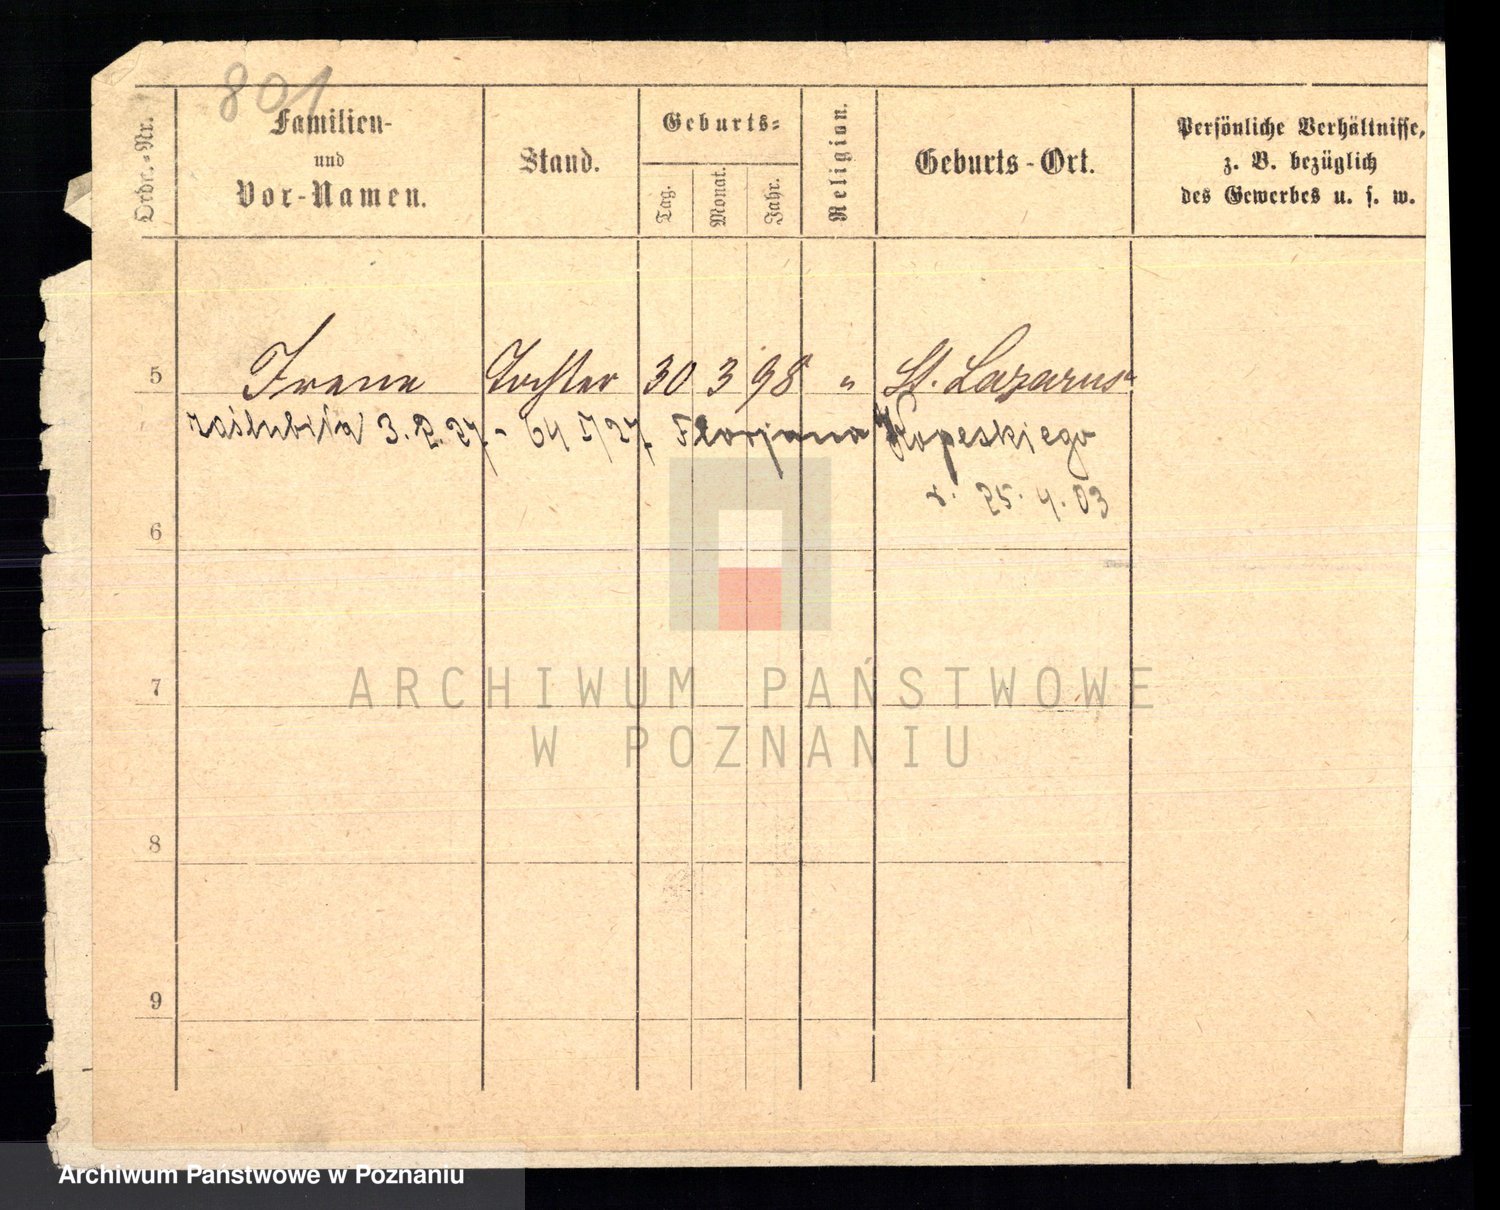 801
Ordn.-Nr.
Familien-
und
Vor-Namen.
Stand.
Geburts-
Tag.
Monat.
Jahr.
Religion.
Geburts-Ort.
Persönliche Verhältnisse,
z. B. bezüglich
des Gewerbes u. s. w.
5 Irena Tochter 30 3 98 " St. Lazarus
zaślubiła 3. 2. 27. - 64 I/27. Florjana Kopeskiego
r. 25. 4. 03
6
7
8
9
ARCHIWUM PAŃSTWOWE
W POZNANIU
Archiwum Państwowe w Poznaniu